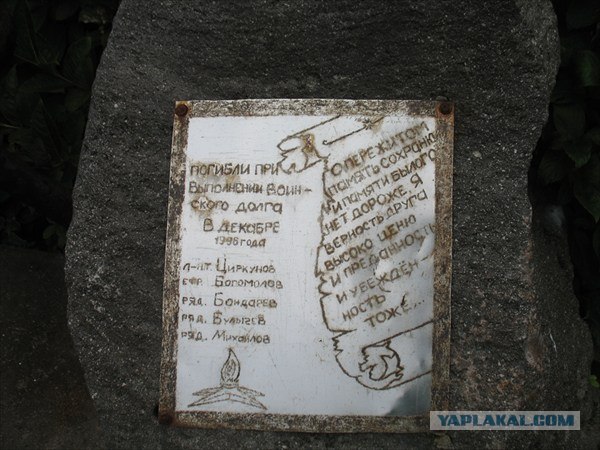 ПОГИБЛИ ПРИ
ВЫПОЛНЕНИИ ВОИН-
СКОГО ДОЛГА
В ДЕКАБРЕ
1998 ГОДА
Л-НТ. ЦИРКУНОВ
ЕФР. БОГОМОЛОВ
РЯД. БОНДАРЕВ
РЯД. БУЛЫГЕВ
РЯД. МИХАЙЛОВ
О ПЕРЕЖИТОМ
ПАМЯТЬ СОХРАНЮ
И ПАМЯТИ БЫЛОГО
НЕТ ДОРОЖЕ. Я
ВЕРНОСТЬ ДРУГА
ВЫСОКО ЦЕНЮ
И ПРЕДАННОСТЬ
И УБЕЖДЁН-
НОСТЬ
ТОЖЕ...
YAPLAKAL.COM